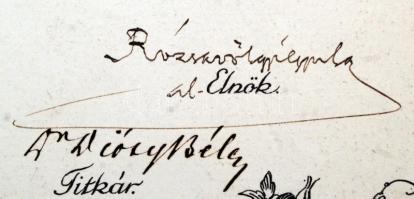 Rózsavölgyi Gyula
al-Elnök.
Dr Diósy Béla
Titkár.